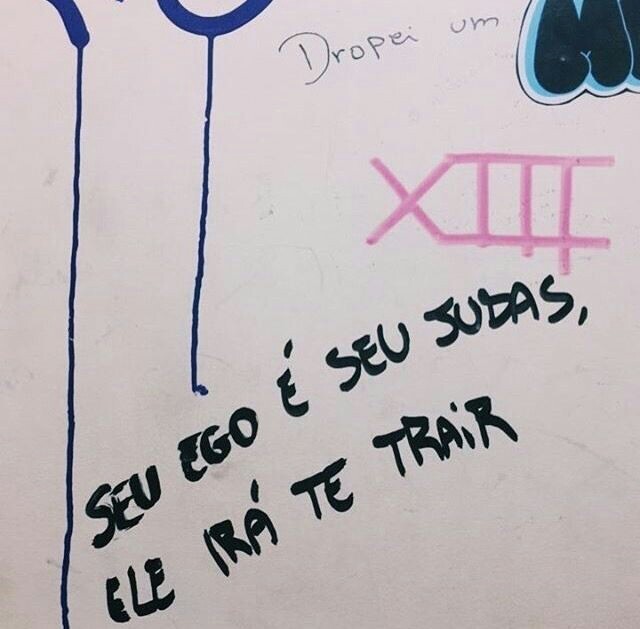 Dropei um
XIII
SEU EGO É SEU JUDAS,
ELE IRÁ TE TRAIR